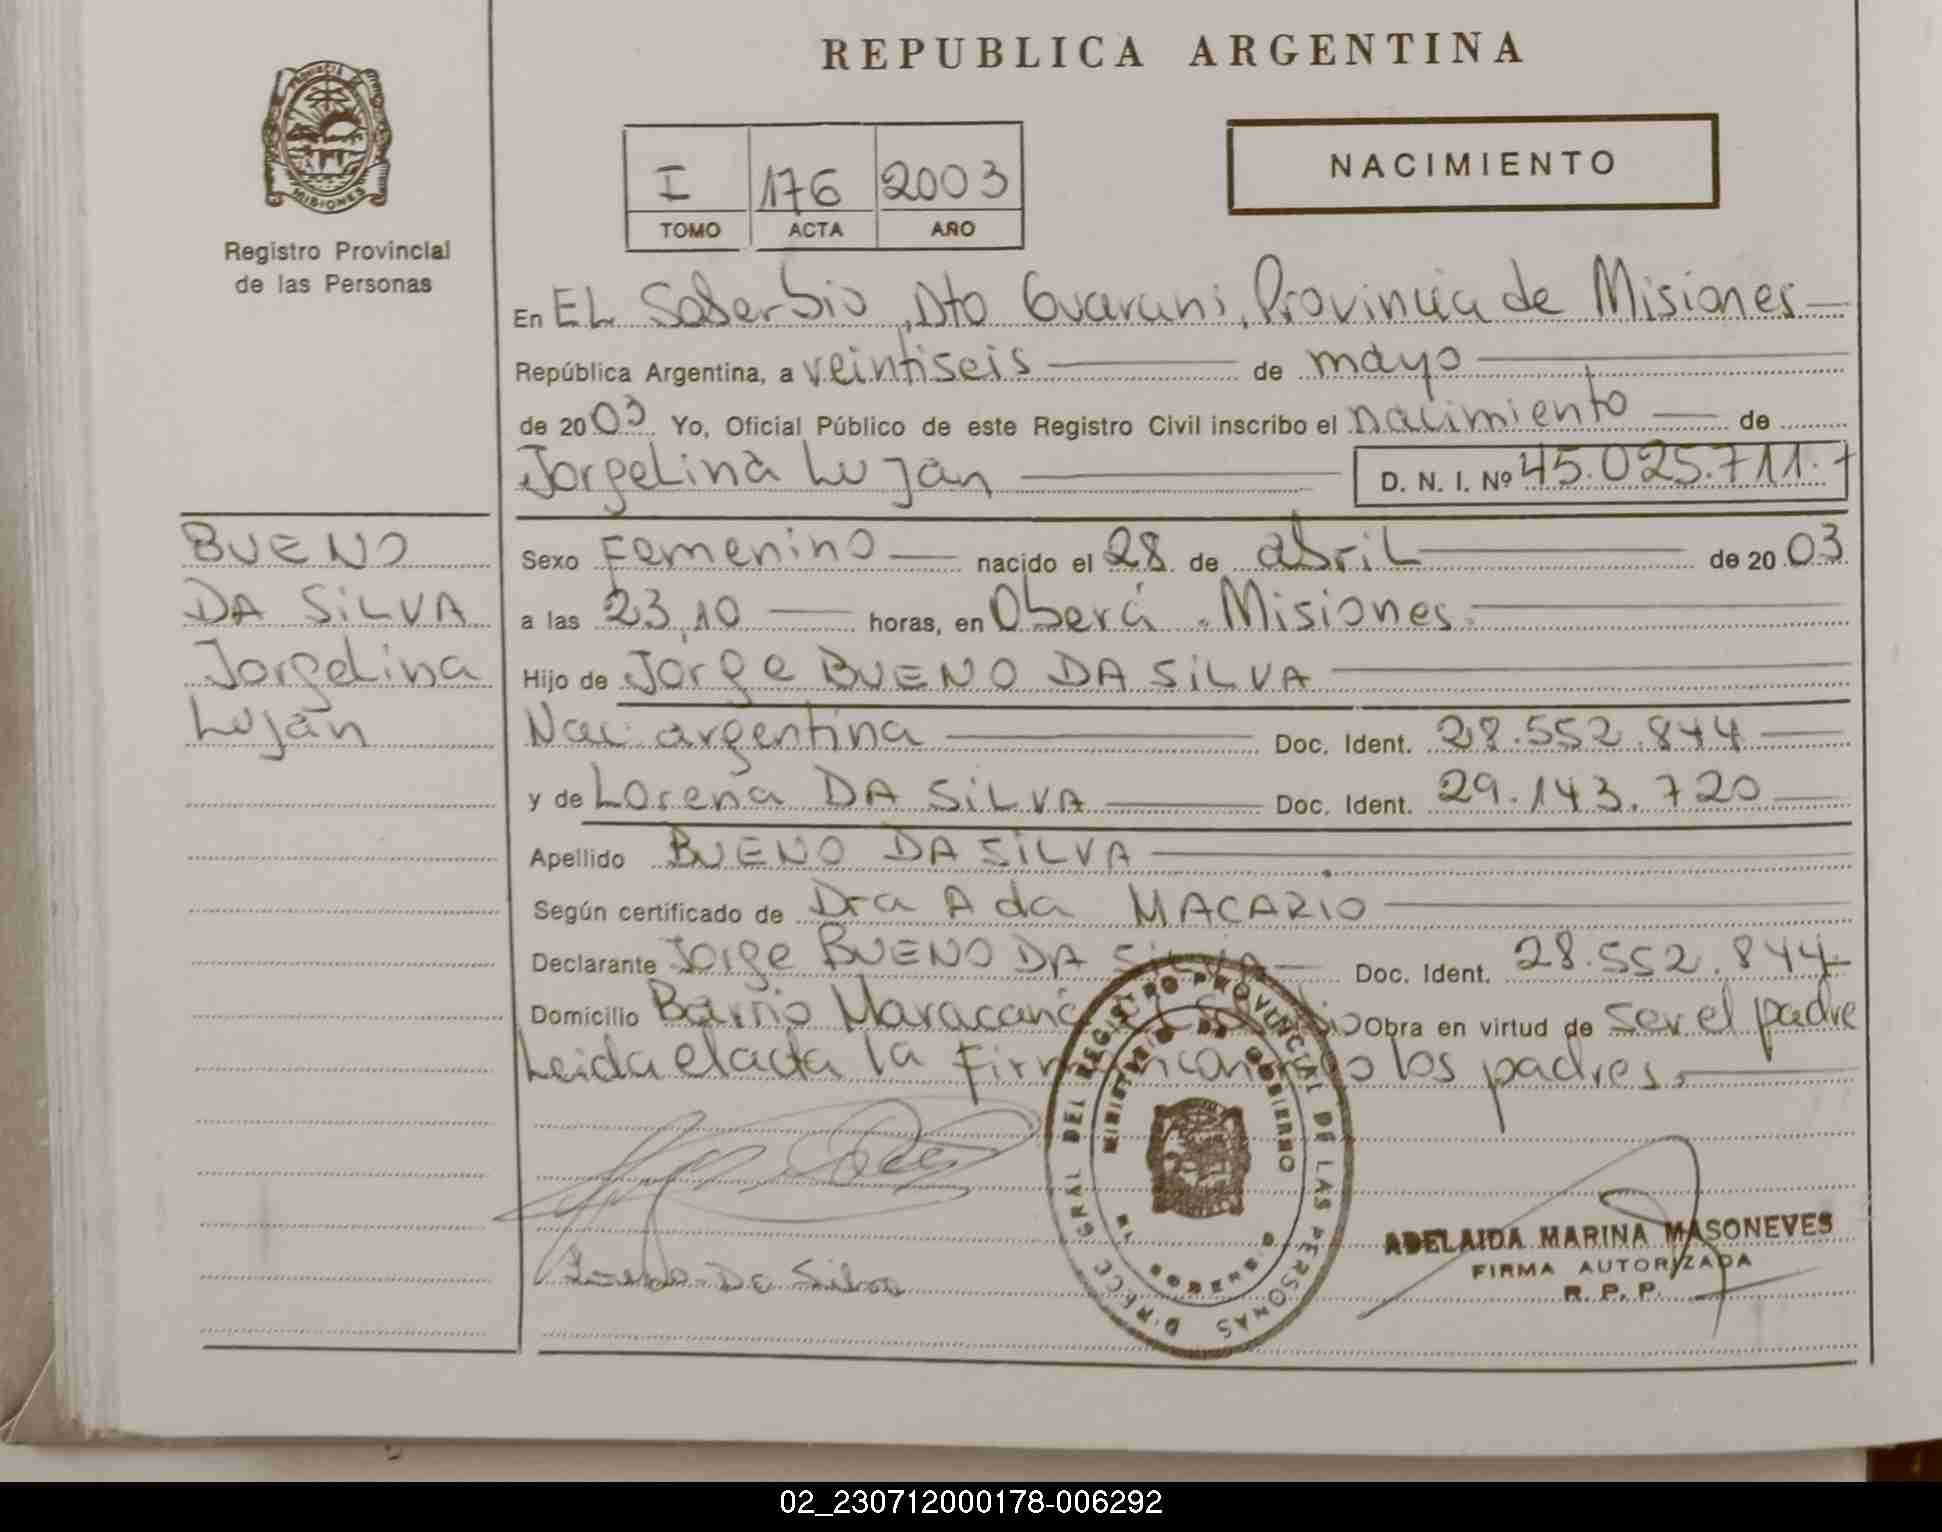 REPUBLICA ARGENTINA
PROVINCIA DE
MISIONES
Registro Provincial
de las Personas
I 176 2003
TOMO ACTA AÑO
NACIMIENTO
En EL Soberbio, Dto Guarani, Provincia de Misiones
República Argentina, a veintiseis de mayo
de 2003 Yo, Oficial Público de este Registro Civil inscribo el nacimiento de
Jorgelina Lujan D. N. I. Nº 45.025.711.
BUENO
DA SiLVA
Jorgelina
Lujan
Sexo Femenino nacido el 28 de abril de 2003
a las 23,10 horas, en Oberá . Misiones.
Hijo de Jorge BUENO DA SiLVA
Nac. argentina Doc. Ident. 28.552.844
y de Lorena DA SiLVA Doc. Ident. 29.143.720
Apellido BUENO DA SiLVA
Según certificado de Dra Ada MACARIO
Declarante Jorge BUENO DA SiLVA Doc. Ident. 28.552.844
Domicilio Barrio Maracaná Obra en virtud de ser el padre
Leida el acta la los padres.
DIRECC GRAL DEL REGISTRO PROVINCIAL DE LAS PERSONAS
MINISTERIO DE GOBIERNO
Da Silva
ADELAIDA MARINA MASONEVES
FIRMA AUTORIZADA
R. P. P.
02_230712000178-006292